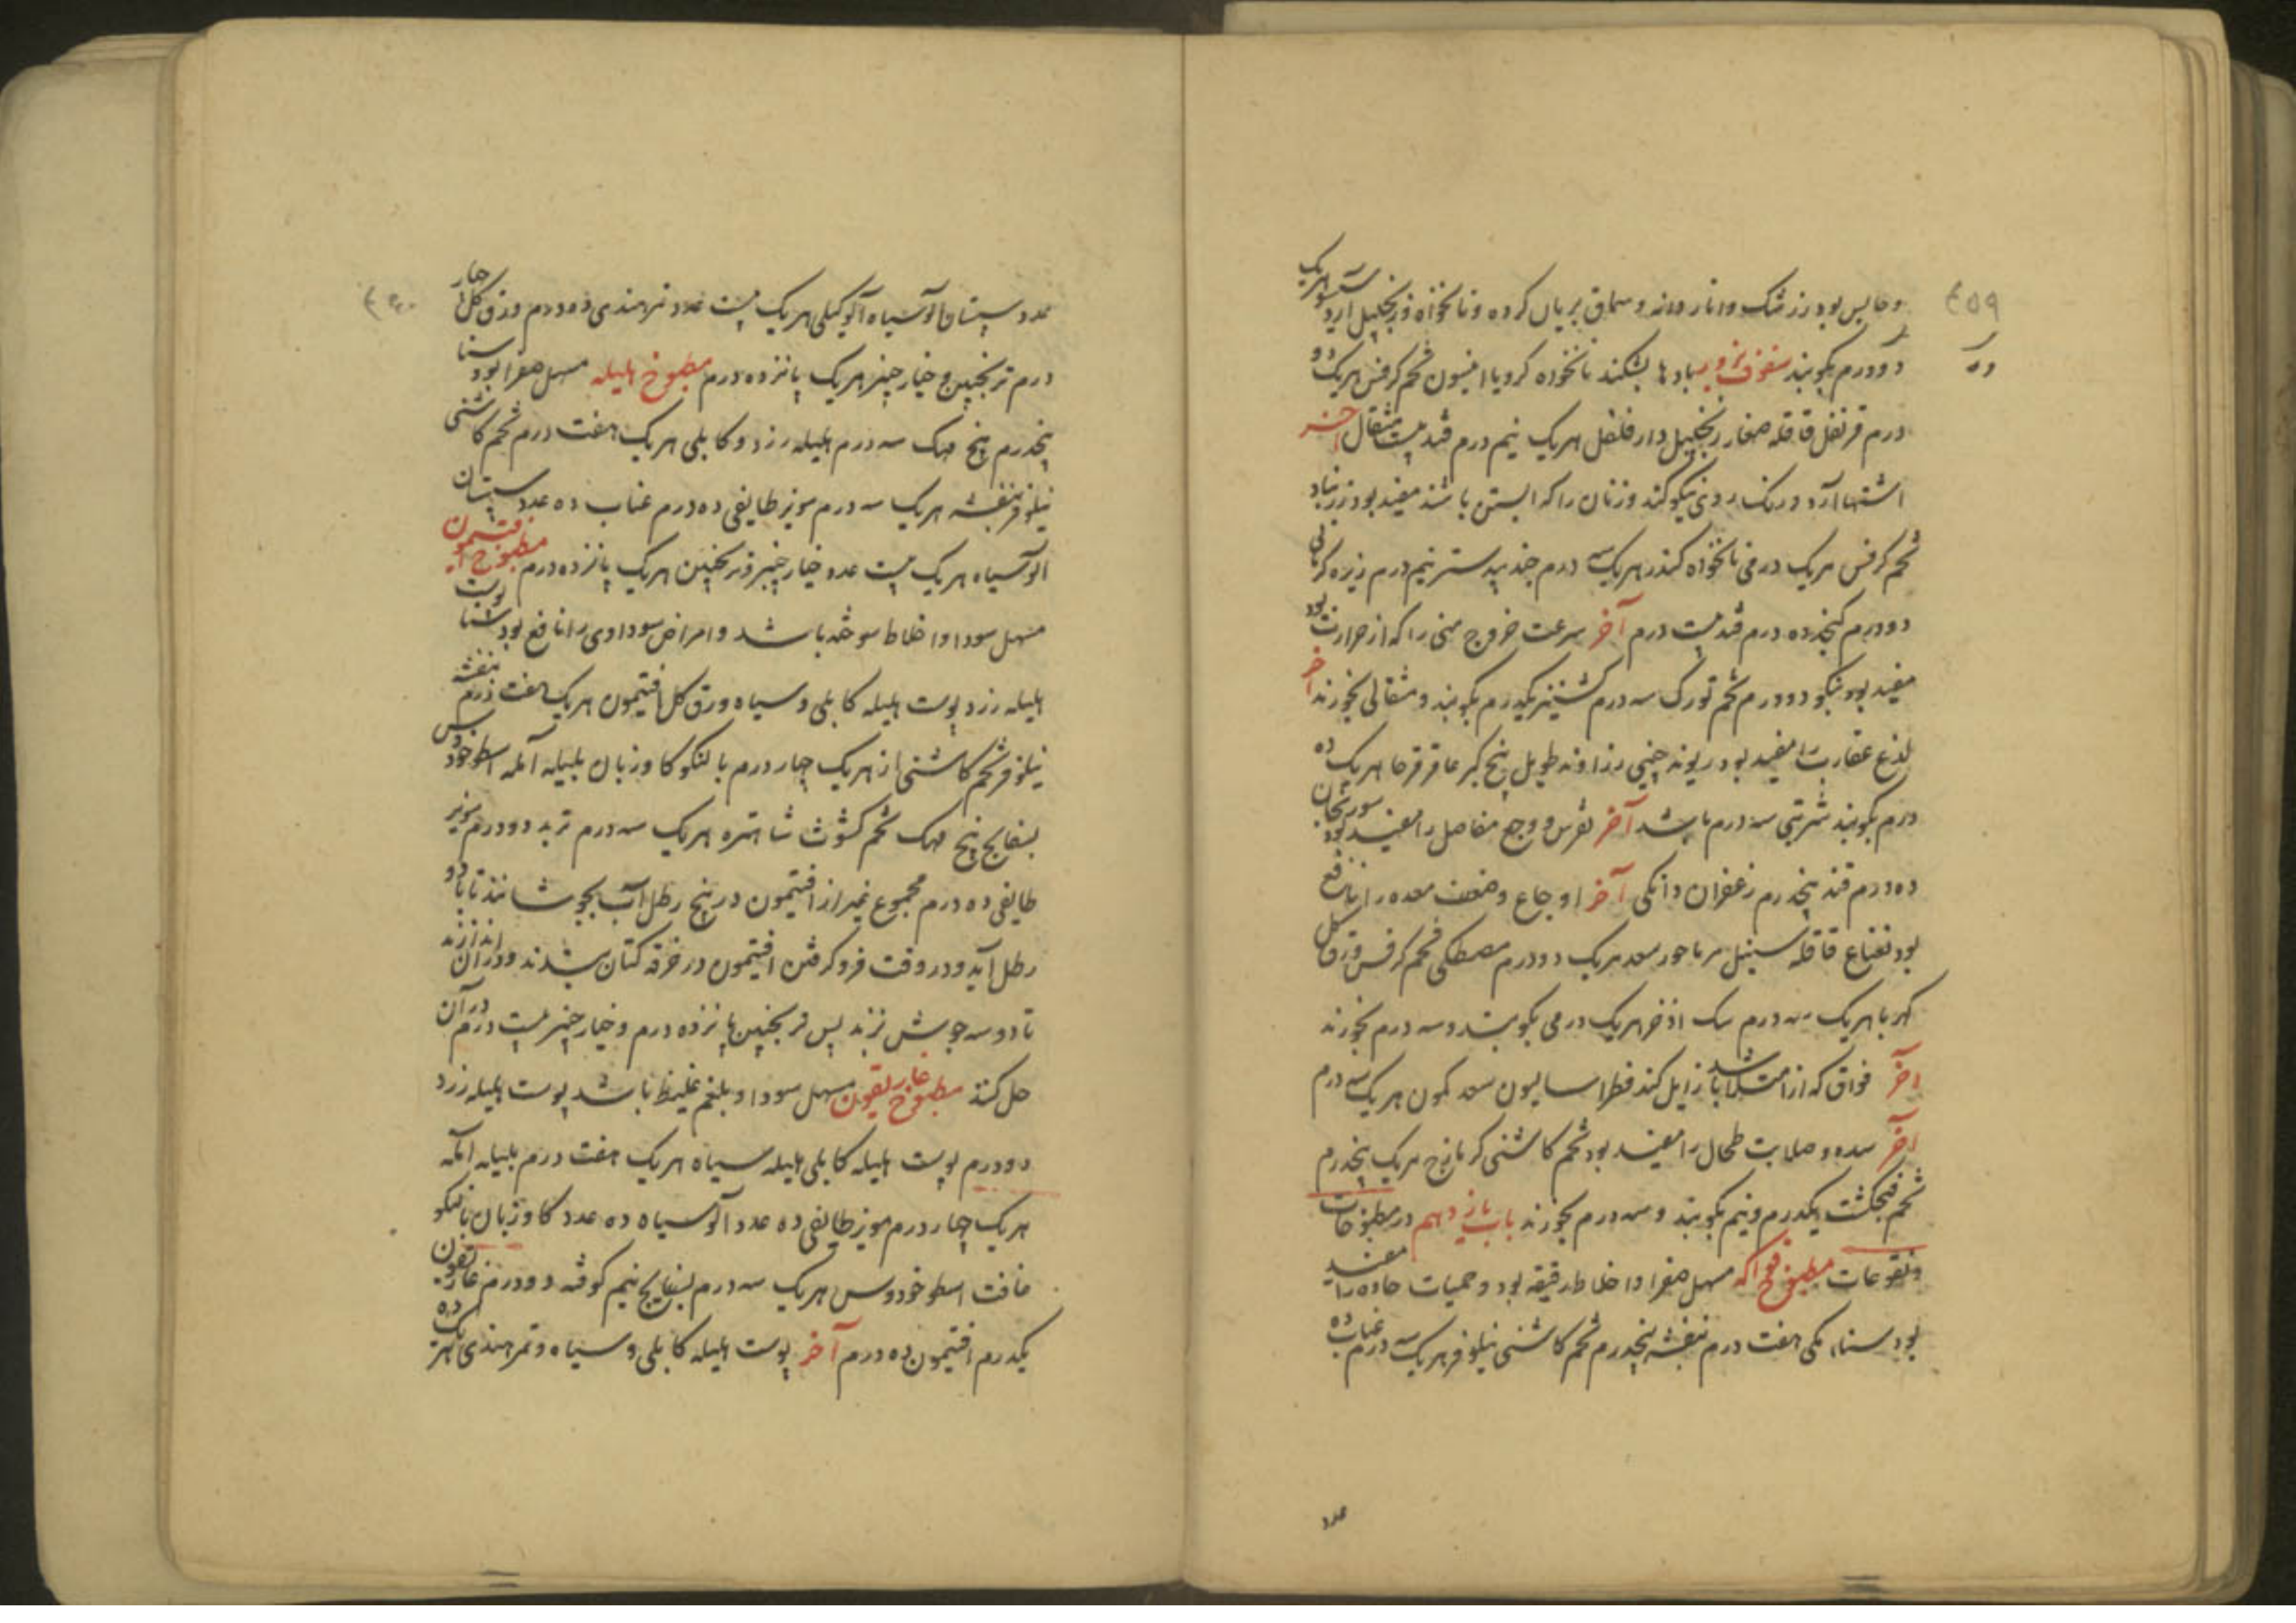 ۴۵۹
و حابس بود زرشک و انار دانه و سماق بریان کرده و نانخواه و زنجبیل از هریک
دو درم بکوبند سفوف بزور بادها بشکند نانخواه کرویا انیسون تخم کرفس هریک دو
درم قرنفل قاقله صغار زنجبیل دارفلفل هریک نیم درم قند بیست مثقال آخر
اشتها آرد و رنک روی نیکو کند و زنان را که آبستن باشند مفید بود زرنباد
تخم کرفس هریک درمی نانخواه کندر هریک سه درم جندبیدستر نیم درم زیره کرمانی
دو درم کنجد ده درم قند بیست درم آخر سرعت خروج منی را که از حرارت بود
مفید بود دو درم تخم تورک سه درم کشنیز یکدرم بکوبند و مثقالی بخورند آخر
لذع عقارب را مفید بود ریوند چینی زراوند طویل بیخ کبر عاقرقرحا هریک ده
درم بکوبند شربتی سه درم باشد آخر نقرس و وجع مفاصل را مفید بود سورنجان
ده درم قند پنجدرم زعفران دانکی آخر اوجاع و ضعف معده را نافع
بود نعناع قاقله سنبل سعد هریک دو درم مصطکی تخم کرفس ورق کل
کهربا هریک سه درم سک اذخر هریک درمی بکوبند و سه درم بخورند
آخر فواق که از امتلا باشد زایل کند فطراسالیون سعد کمون هریک سه درم
آخر سده و صلابت طحال را مفید بود تخم کاشنی کزمازج هریک پنجدرم
تخم فنجنکشت یکدرم و نیم بکوبند و سه درم بخورند باب یازدهم در مطبوخات
و نقوعات مطبوخ فواکه مسهل صفرا و اخلاط رقیقه بود و حمیات حاده را مفید
بود سناء مکی هفت درم بنفشه پنجدرم تخم کاشنی نیلوفر هریک سه درم عناب ده
عدد
عدد سپستان آلو سیاه آلو کیلی هریک بیست عدد تمر هندی ده درم ورق کل چار
درم ترنجبین و خیار چنبر هریک پانزده درم مطبوخ هلیله مسهل صفرا بود سنا
پنجدرم بیخ مهک سه درم هلیله زرد و کابلی هریک هفت درم تخم کاشنی
نیلوفر بنفشه هریک سه درم مویز طایفی ده درم عناب ده عدد سپستان
آلو سیاه هریک بیست عدد خیار چنبر و ترنجبین هریک پانزده درم مطبوخ افتیمون
مسهل سودا و اخلاط سوخته باشد و امراض سوداوی را نافع بود سنا پوست
هلیله زرد پوست هلیله کابلی و سیاه ورق کل افتیمون هریک هفت درم بنفشه
نیلوفر تخم کاشنی از هریک چهار درم بالنکو کاوزبان بلیله آمله اسطوخودوس
بسفایج بیخ مهک تخم کشوث شاهتره هریک سه درم تربد دو درم مویز
طایفی ده درم مجموع غیر از افتیمون در پنج رطل آب بجوشانند تا با دو
رطل آید و در وقت فرو کرفتن افتیمون در خرقه کتان بندند و در آن اندازند
تا دو سه جوش زند پس ترنجبین پانزده درم و خیار چنبر بیست درم در آن
حل کنند مطبوخ غاریقون مسهل سودا و بلغم غلیظ باشد پوست هلیله زرد
دو درم پوست هلیله کابلی هلیله سیاه هریک هفت درم بلیله آمله
هریک چهار درم مویز طایفی ده عدد آلو سیاه ده عدد کاوزبان بالنکو
غافت اسطوخودوس هریک سه درم بسفایج نیم کوفته دو درم غاریقون
یکدرم افتیمون ده درم آخر پوست هلیله کابلی و سیاه و تمر هندی هریک ده